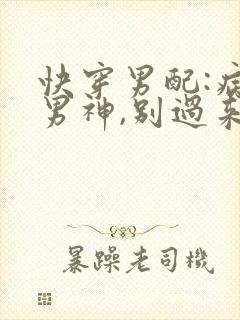 快穿男配:病
男神,别過来
暴躁老司機